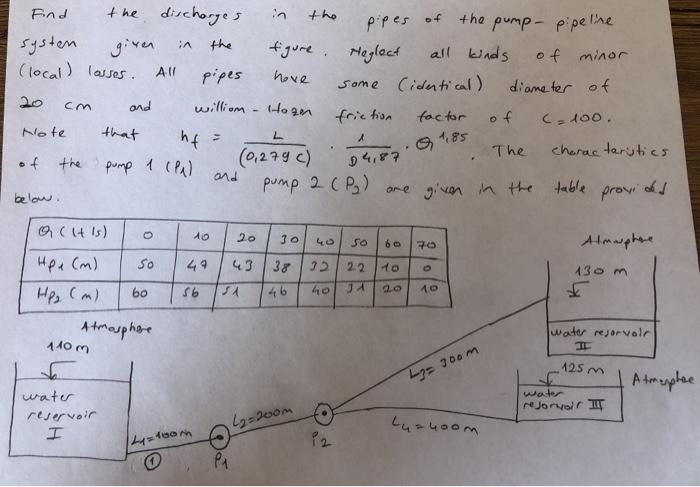 Find the discharges in the pipes of the pump-pipeline
system given in the figure. Neglect all kinds of minor
(local) losses. All pipes have same (identical) diameter of
20 cm and william-Hazen friction factor of C=100.
Note that hf = L/(0,279 C) . 1/D4,87 . Q1,85 . The characteristics
of the pump 1 (P1) and pump 2 (P2) are given in the table provided
below.
Q (lt/s) 0 10 20 30 40 50 60 70
Hp1 (m) 50 47 43 38 32 22 10 0
Hp2 (m) 60 56 51 46 40 31 20 10
Atmosphere
130 m
water reservoir
II
Atmosphere
110m
water
reservoir
I
L3= 300m
125m
Atmosphere
water
reservoir III
L1=100m
L2=200m
L4=400m
1
P1
P2